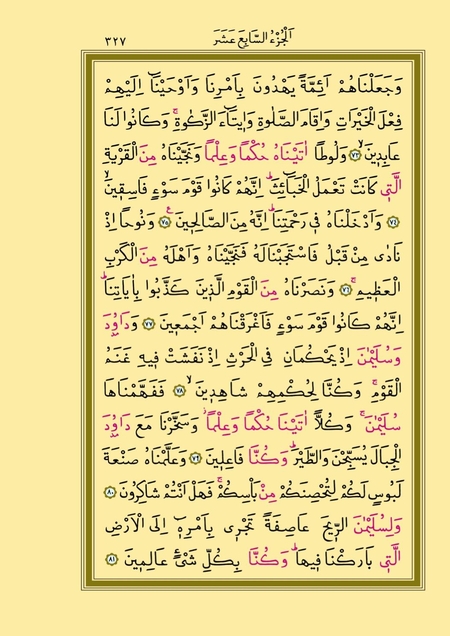 اَلْجُزْءُ السَّابِعَ عَشَرَ ٣٢٧
وَجَعَلْنَاهُمْ اَئِمَّةً يَهْدُونَ بِاَمْرِنَا وَاَوْحَيْنَٓا اِلَيْهِمْ
فِعْلَ الْخَيْرَاتِ وَاِقَامَ الصَّلٰوةِ وَا۪يتَٓاءَ الزَّكٰوةِۚ وَكَانُوا لَنَا
عَابِد۪ينَۙ ﴿٧٣﴾ وَلُوطًا اٰتَيْنَاهُ حُكْمًا وَعِلْمًا وَنَجَّيْنَاهُ مِنَ الْقَرْيَةِ
الَّت۪ي كَانَتْ تَعْمَلُ الْخَبَٓائِثَۜ اِنَّهُمْ كَانُوا قَوْمَ سَوْءٍ فَاسِق۪ينَۙ
﴿٧٤﴾ وَاَدْخَلْنَاهُ ف۪ي رَحْمَتِنَاۜ اِنَّهُ مِنَ الصَّالِح۪ينَ۟ ﴿٧٥﴾ وَنُوحًا اِذْ
نَادٰى مِنْ قَبْلُ فَاسْتَجَبْنَا لَهُ فَنَجَّيْنَاهُ وَاَهْلَهُ مِنَ الْكَرْبِ
الْعَظ۪يمِۚ ﴿٧٦﴾ وَنَصَرْنَاهُ مِنَ الْقَوْمِ الَّذ۪ينَ كَذَّبُوا بِاٰيَاتِنَاۜ
اِنَّهُمْ كَانُوا قَوْمَ سَوْءٍ فَاَغْرَقْنَاهُمْ اَجْمَع۪ينَ ﴿٧٧﴾ وَدَاوُ۫دَ
وَسُلَيْمٰنَ اِذْ يَحْكُمَانِ فِي الْحَرْثِ اِذْ نَفَشَتْ ف۪يهِ غَنَمُ
الْقَوْمِۚ وَكُنَّا لِحُكْمِهِمْ شَاهِد۪ينَۙ ﴿٧٨﴾ فَفَهَّمْنَاهَا
سُلَيْمٰنَۚ وَكُلًّا اٰتَيْنَا حُكْمًا وَعِلْمًاۘ وَسَخَّرْنَا مَعَ دَاوُ۫دَ
الْجِبَالَ يُسَبِّحْنَ وَالطَّيْرَۜ وَكُنَّا فَاعِل۪ينَ ﴿٧٩﴾ وَعَلَّمْنَاهُ صَنْعَةَ
لَبُوسٍ لَكُمْ لِتُحْصِنَكُمْ مِنْ بَأْسِكُمْۚ فَهَلْ اَنْتُمْ شَاكِرُونَ ﴿٨٠﴾
وَلِسُلَيْمٰنَ الرّ۪يحَ عَاصِفَةً تَجْر۪ي بِاَمْرِه۪ٓ اِلَى الْاَرْضِ
الَّت۪ي بَارَكْنَا ف۪يهَاۜ وَكُنَّا بِكُلِّ شَيْءٍ عَالِم۪ينَ ﴿٨١﴾